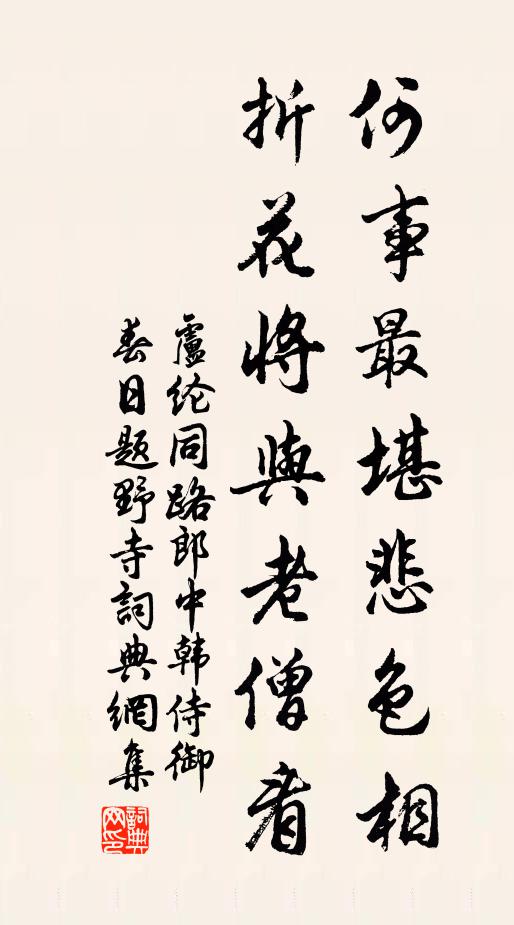 何事最堪悲色相
折花將與老僧看
盧纶同路郎中韩侍御
春日题野寺詞典網集
詞典网印